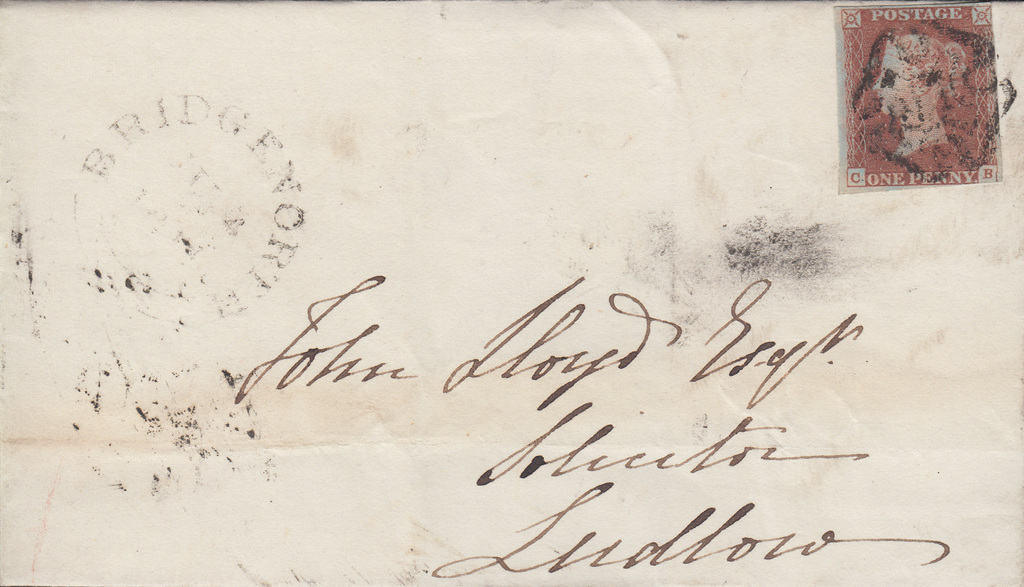 POSTAGE
C B
ONE PENNY
BRIDGENORTH
John Lloyd Esqr.
Solicitor
Ludlow